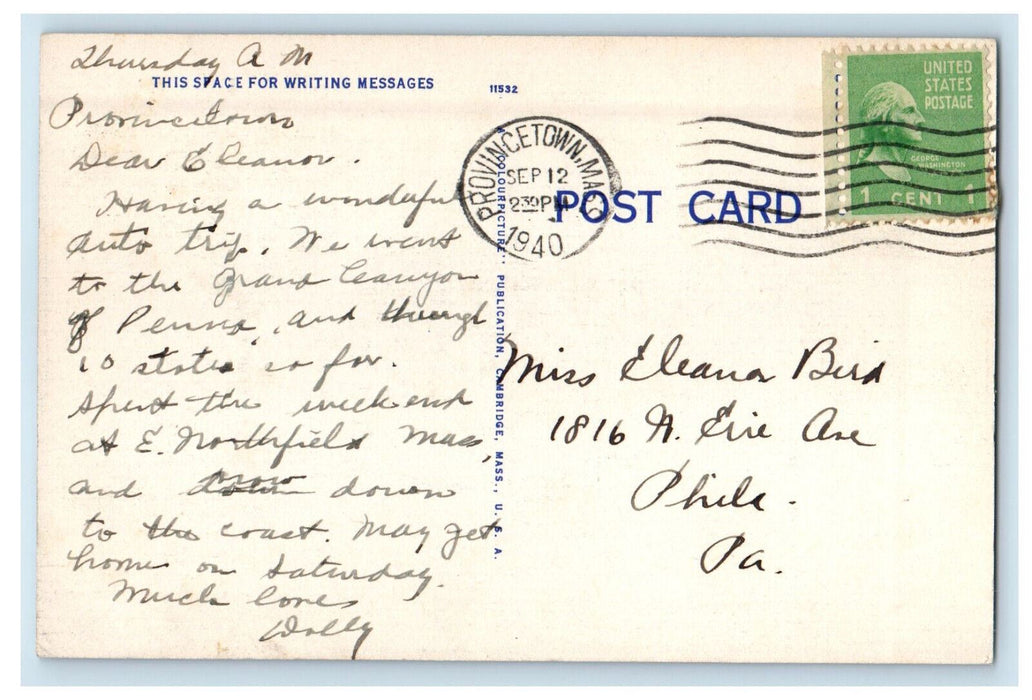 Thursday A M
THIS SPACE FOR WRITING MESSAGES
11532
Provincetown
Dear Eleanor.
Having a wonderful
auto trip. We went
to the Grand Canyon
of Penna, and through
10 states so far.
Spent the weekend
at E. Northfield Mass,
and now down
to the coast. May get
home on Saturday.
Much loves
Dolly
"COLOURPICTURE" PUBLICATION, CAMBRIDGE, MASS., U. S. A.
PROVINCETOWN, MASS
SEP 12
2 30 PM
1940
POST CARD
UNITED
STATES
POSTAGE
GEORGE
WASHINGTON
1 CENT 1
Miss Eleanor Bird
1816 N. Erie Ave
Phila.
Pa.